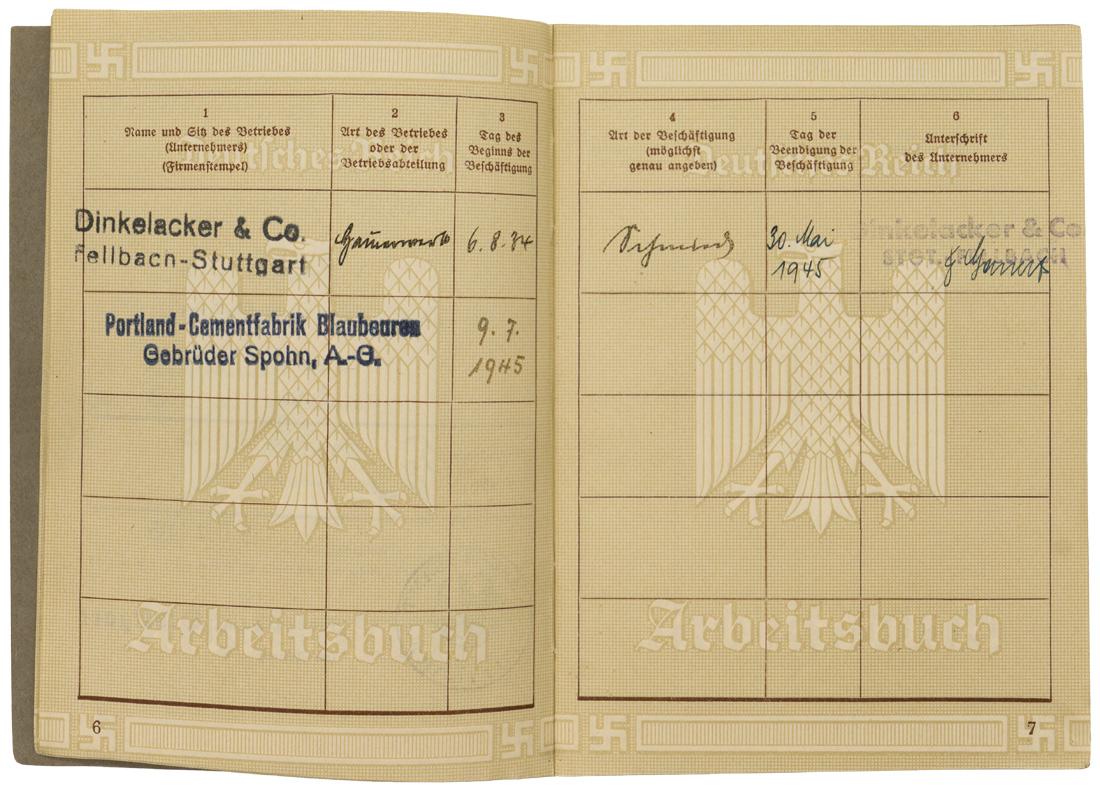 1
Name und Sitz des Betriebes
(Unternehmers)
(Firmenstempel)
2
Art des Betriebes
oder der
Betriebsabteilung
3
Tag des
Beginns der
Beschäftigung
Deutsches Reich
Dinkelacker & Co.
Fellbach-Stuttgart
6. 8. 34
Portland-Cementfabrik Blaubeuren
Gebrüder Spohn, A.-G.
9. 7.
1945
Arbeitsbuch
6
4
Art der Beschäftigung
(möglichst
genau angeben)
5
Tag der
Beendigung der
Beschäftigung
6
Unterschrift
des Unternehmers
Deutsches Reich
30. Mai
1945
nkelacker & Co
Arbeitsbuch
7